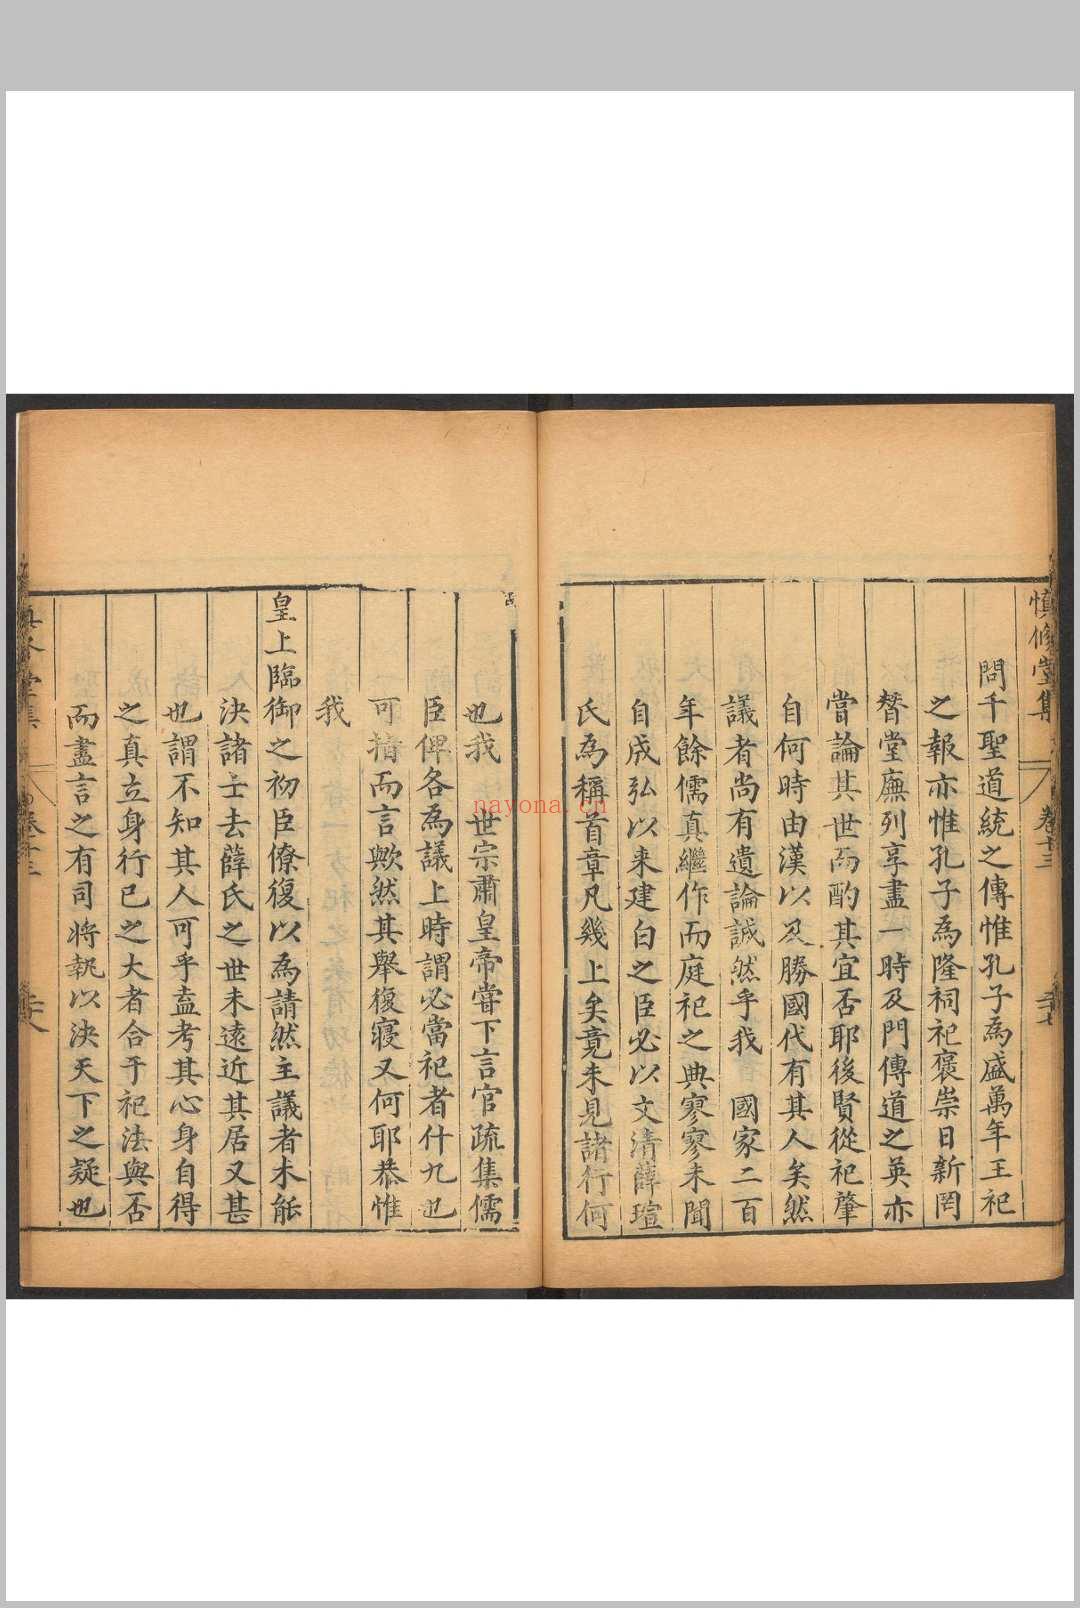 慎修堂集 卷十三 二十七
問千聖道統之傳惟孔子為盛萬年王祀
之報亦惟孔子為隆祠祀褒崇日新罔
朁堂廡列享盡一時及門傳道之英亦
嘗論其世而酌其宜否耶後賢從祀肇
自何時由漢以及勝國代有其人矣然
議者尚有遺論誠然乎我 國家二百
年餘儒真繼作而庭祀之典寥寥未聞
自成弘以來建白之臣必以文清薛瑄
氏為稱首章凡幾上矣竟未見諸行何
也我 世宗肅皇帝嘗下言官疏集儒
臣俾各為議上時謂必當祀者什九也
可揞而言歟然其舉復寢又何耶恭惟
我
皇上臨御之初臣僚復以為請然主議者未能
決諸士去薛氏之世未遠近其居又甚
也謂不知其人可乎盍考其心身自得
之真立身行已之大者合于祀法與否
而盡言之有司將執以決天下之疑也
堂集 卷十三 二十八
nayona.cn